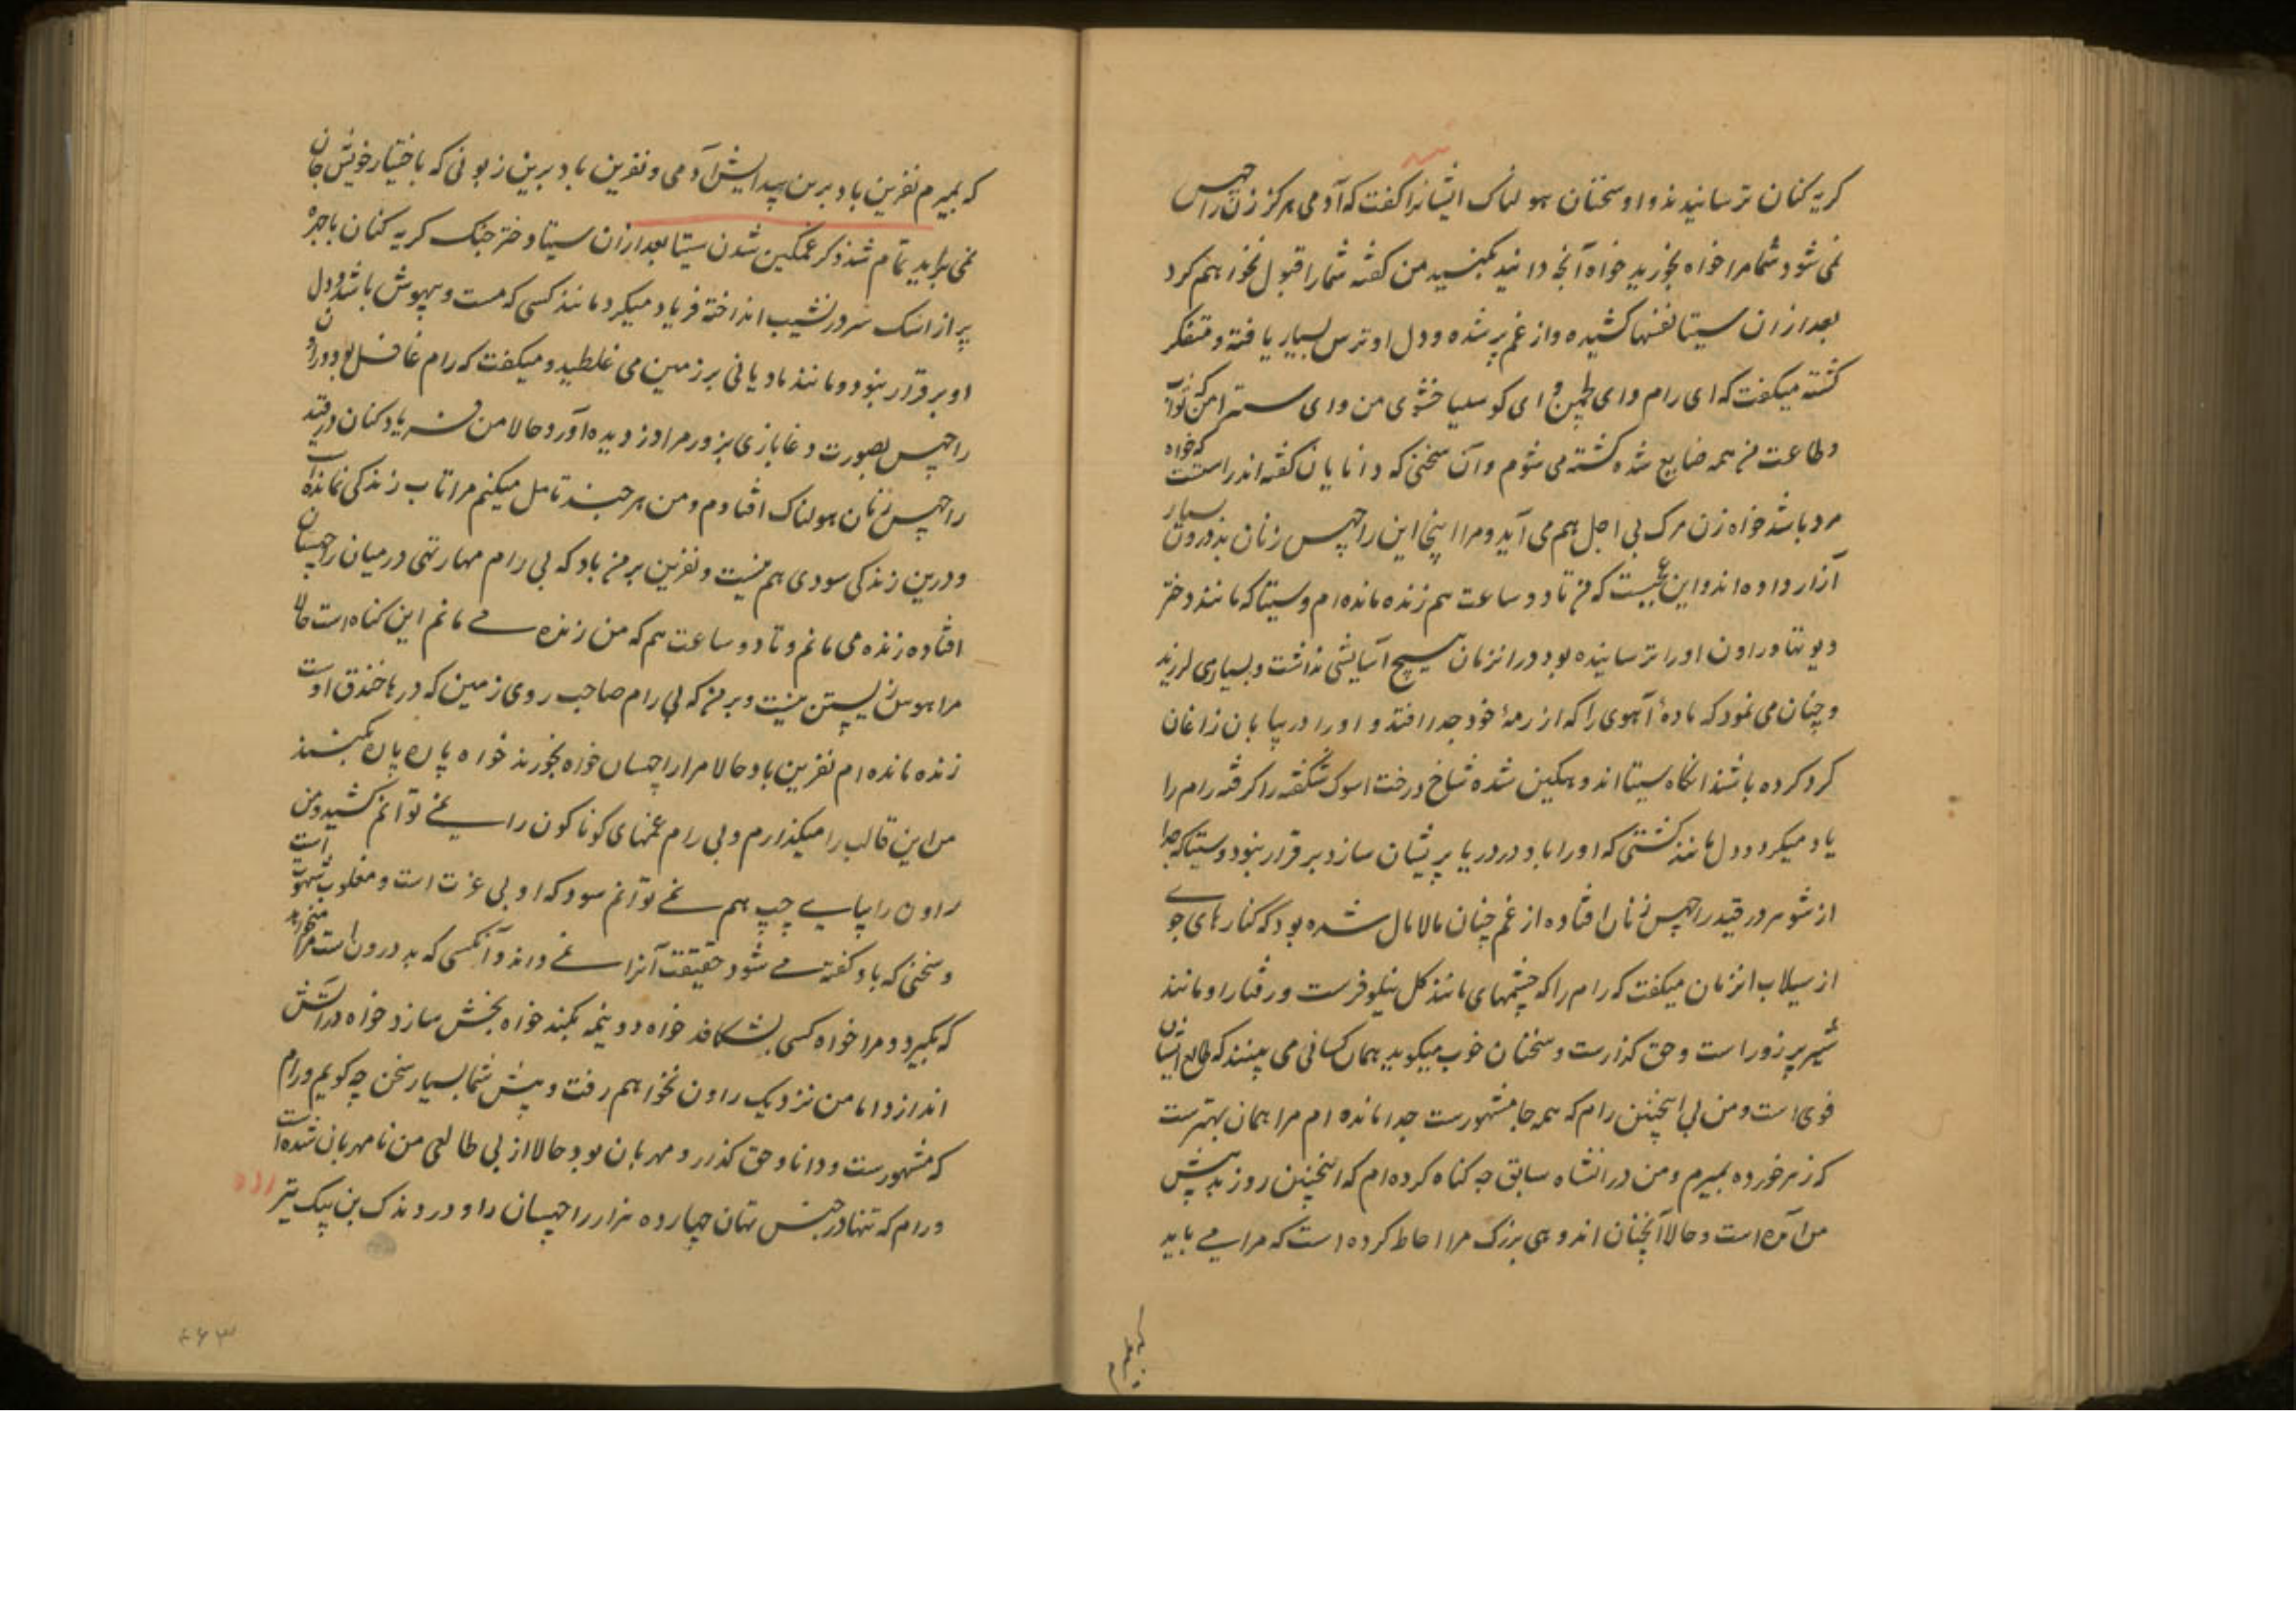 کریه کنان ترسانیدند و او سخنان هولناک ایشانرا کفت که آدمی هرکز زن راچهس
نمی شود شما مرا خواه بخورید خواه آنچه دانید بکنید من کفته شما را قبول نخواهم کرد
بعد ازان سیتا نفسها کشیده و از غم پر شده و دل او ترس بسیار یافته و متفکر
کشته میکفت که ای رام و ای لچمن و ای کوسلیا خشوی من و ای سمترا من که نواب
و طاعت من همه ضایع شده کشته می شوم و آن سخنی که دانایان کفته اند راستست که خواه
مرد باشد خواه زن مرک بی اجل هم می آید و مرا اینجا این راچهس زنان بددرون بسیار
آزار داده اند و این عجبست که من تا دو ساعت هم زنده مانده ام و سیتا که مانند دختر
دیوتها و راون او را ترسانیده بود در انزمان هیچ آسایشی نداشت و بسیار می لرزید
و چنان می نمود که ماده آهوی را که از رمه خود جدا افتد و او را در بیابان زاغان
کرد کرده باشند انکاه سیتا اندوهکین شده شاخ درخت اسوک شکفته را کرفته رام را
یاد میکرد و دل مانند کشتی که او را باد در دریا پریشان سازد برقرار نبود و سیتا که جدا
از شوهر در قید راچهس زنان افتاده از غم چنان مالامال شده بود که کنارهای جوی
از سیلاب انزمان میکفت که رام را که چشمهای مانند کل نیلوفرست و رفتار او مانند
شیر پر زور است و حق کذارست و سخنان خوب میکوید همان کسانی می بینند که طالع ایشان
قوی است و من بی اینچنین رام که همه جا مشهورست جدا مانده ام مرا همان بهترست
که زهر خورده بمیرم و من در انشاه سابق چه کناه کرده ام که اینچنین روز بد پیش
من آمده است و حالا آنچنان اندوهی بزرک مرا احاطه کرده است که مرا می باید
که بمیرم
که بمیرم نفرین باد برین پیدایش آدمی و نفرین باد برین زبونی که باختیار خویش جان
نمی برآید تمام شد ذکر غمکین شدن سیتا بعد ازان سیتا دختر جنک کریه کنان با چهره
پر از اشک سر در نشیب انداخته فریاد میکرد مانند کسی که مست و بیهوش باشد و دل
او برقرار نبود و مانند مادیانی بر زمین می غلطید و میکفت که رام غافل بود و راون
راچهس بصورت دغابازی بزور مرا دزدیده آورد و حالا من فریاد کنان در قید
راچهس زنان هولناک افتادم و من هر چند تامل میکنم مرا تاب زندکی نمانده است
و درین زندکی سودی هم نیست و نفرین بر من باد که بی رام مهارتهی در میان راچهسان
افتاده زنده می مانم و تا دو ساعت هم که من زنده می مانم این کناه است حالا
مرا هوس زیستن نیست و بر من که بی رام صاحب روی زمین که دریاها خندق اوست
زنده مانده ام نفرین باد حالا مرا راچهسان خواه بخورند خواه پاره پاره بکنند
من این قالب را میکذارم و بی رام غمهای کوناکون را نمی توانم کشید و من
راون را بپای چپ هم نمی توانم سود که او بی عزت است و مغلوب شهوت است
و سخنی که باو کفته می شود حقیقت آنرا نمی داند و آنکسی که بددرون است مرا میخواهد
که بکیرد و مرا خواه کسی بشکافد خواه دو نیمه بکند خواه بخش سازد خواه در آتش
اندازد اما من نزدیک راون نخواهم رفت و پیش شما بسیار سخن چه کویم و رام
که مشهورست و دانا و حق کذار و مهربان بود حالا از بی طالعی من نامهربان شده است
و رام که تنها در جنستهان چهارده هزار راچهسان را و در دندک بن یک تیر
۴۶۳